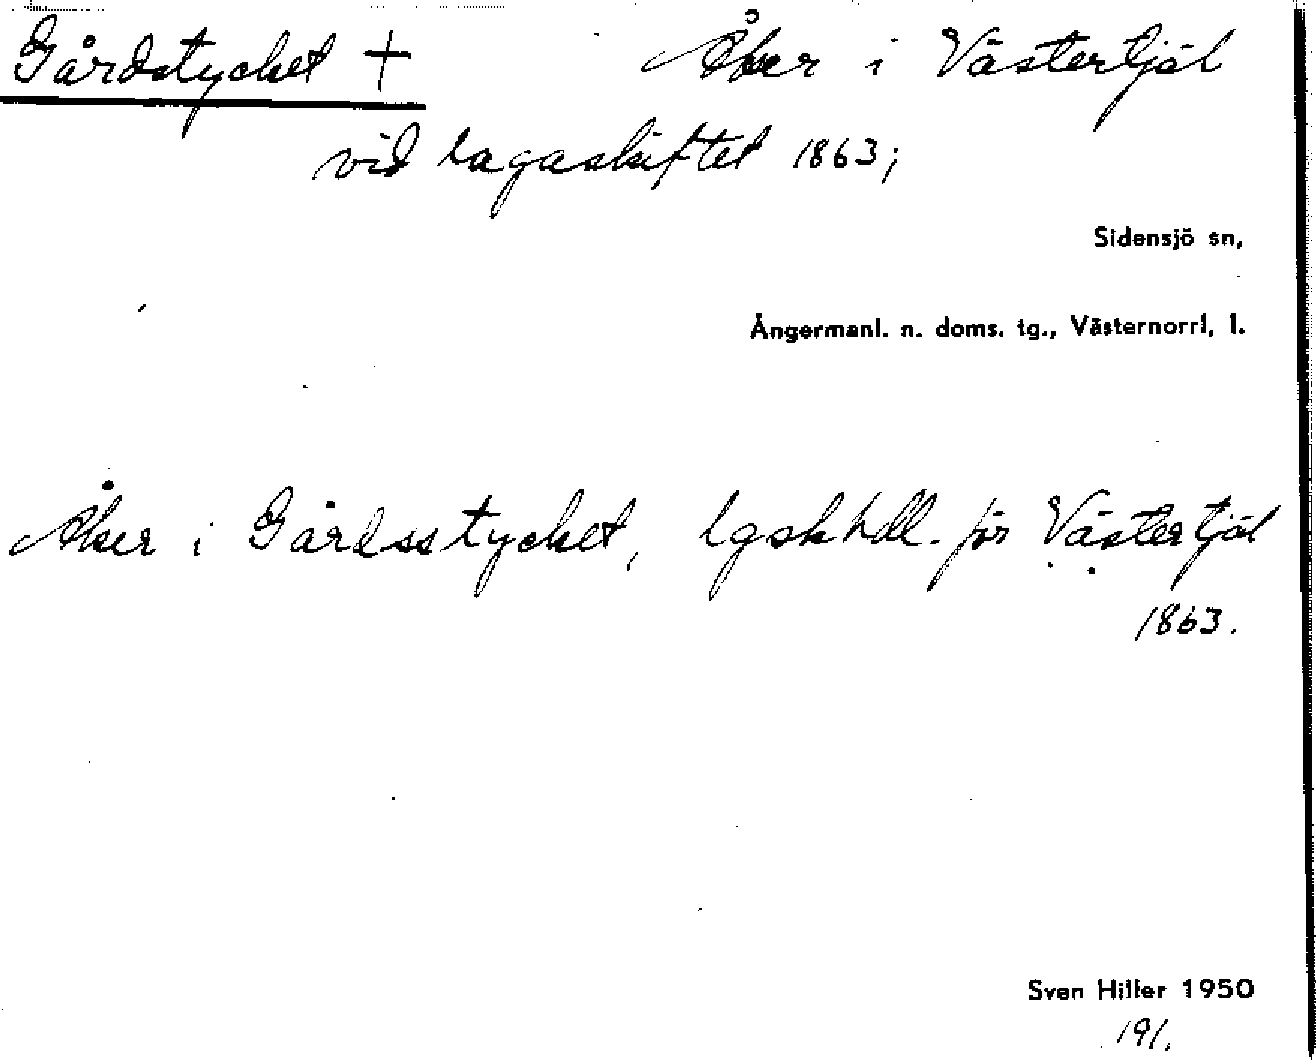 Gårdstycket + Åker i Västertjäl
vid lagaskiftet 1863;
Sidensjö sn,
Ångermanl. n. doms. tg., Västernorrl. l.
Åker i Gårdsstycket, lgskhdl. för Västertjäl
1863.
Sven Hiller 1950
191.